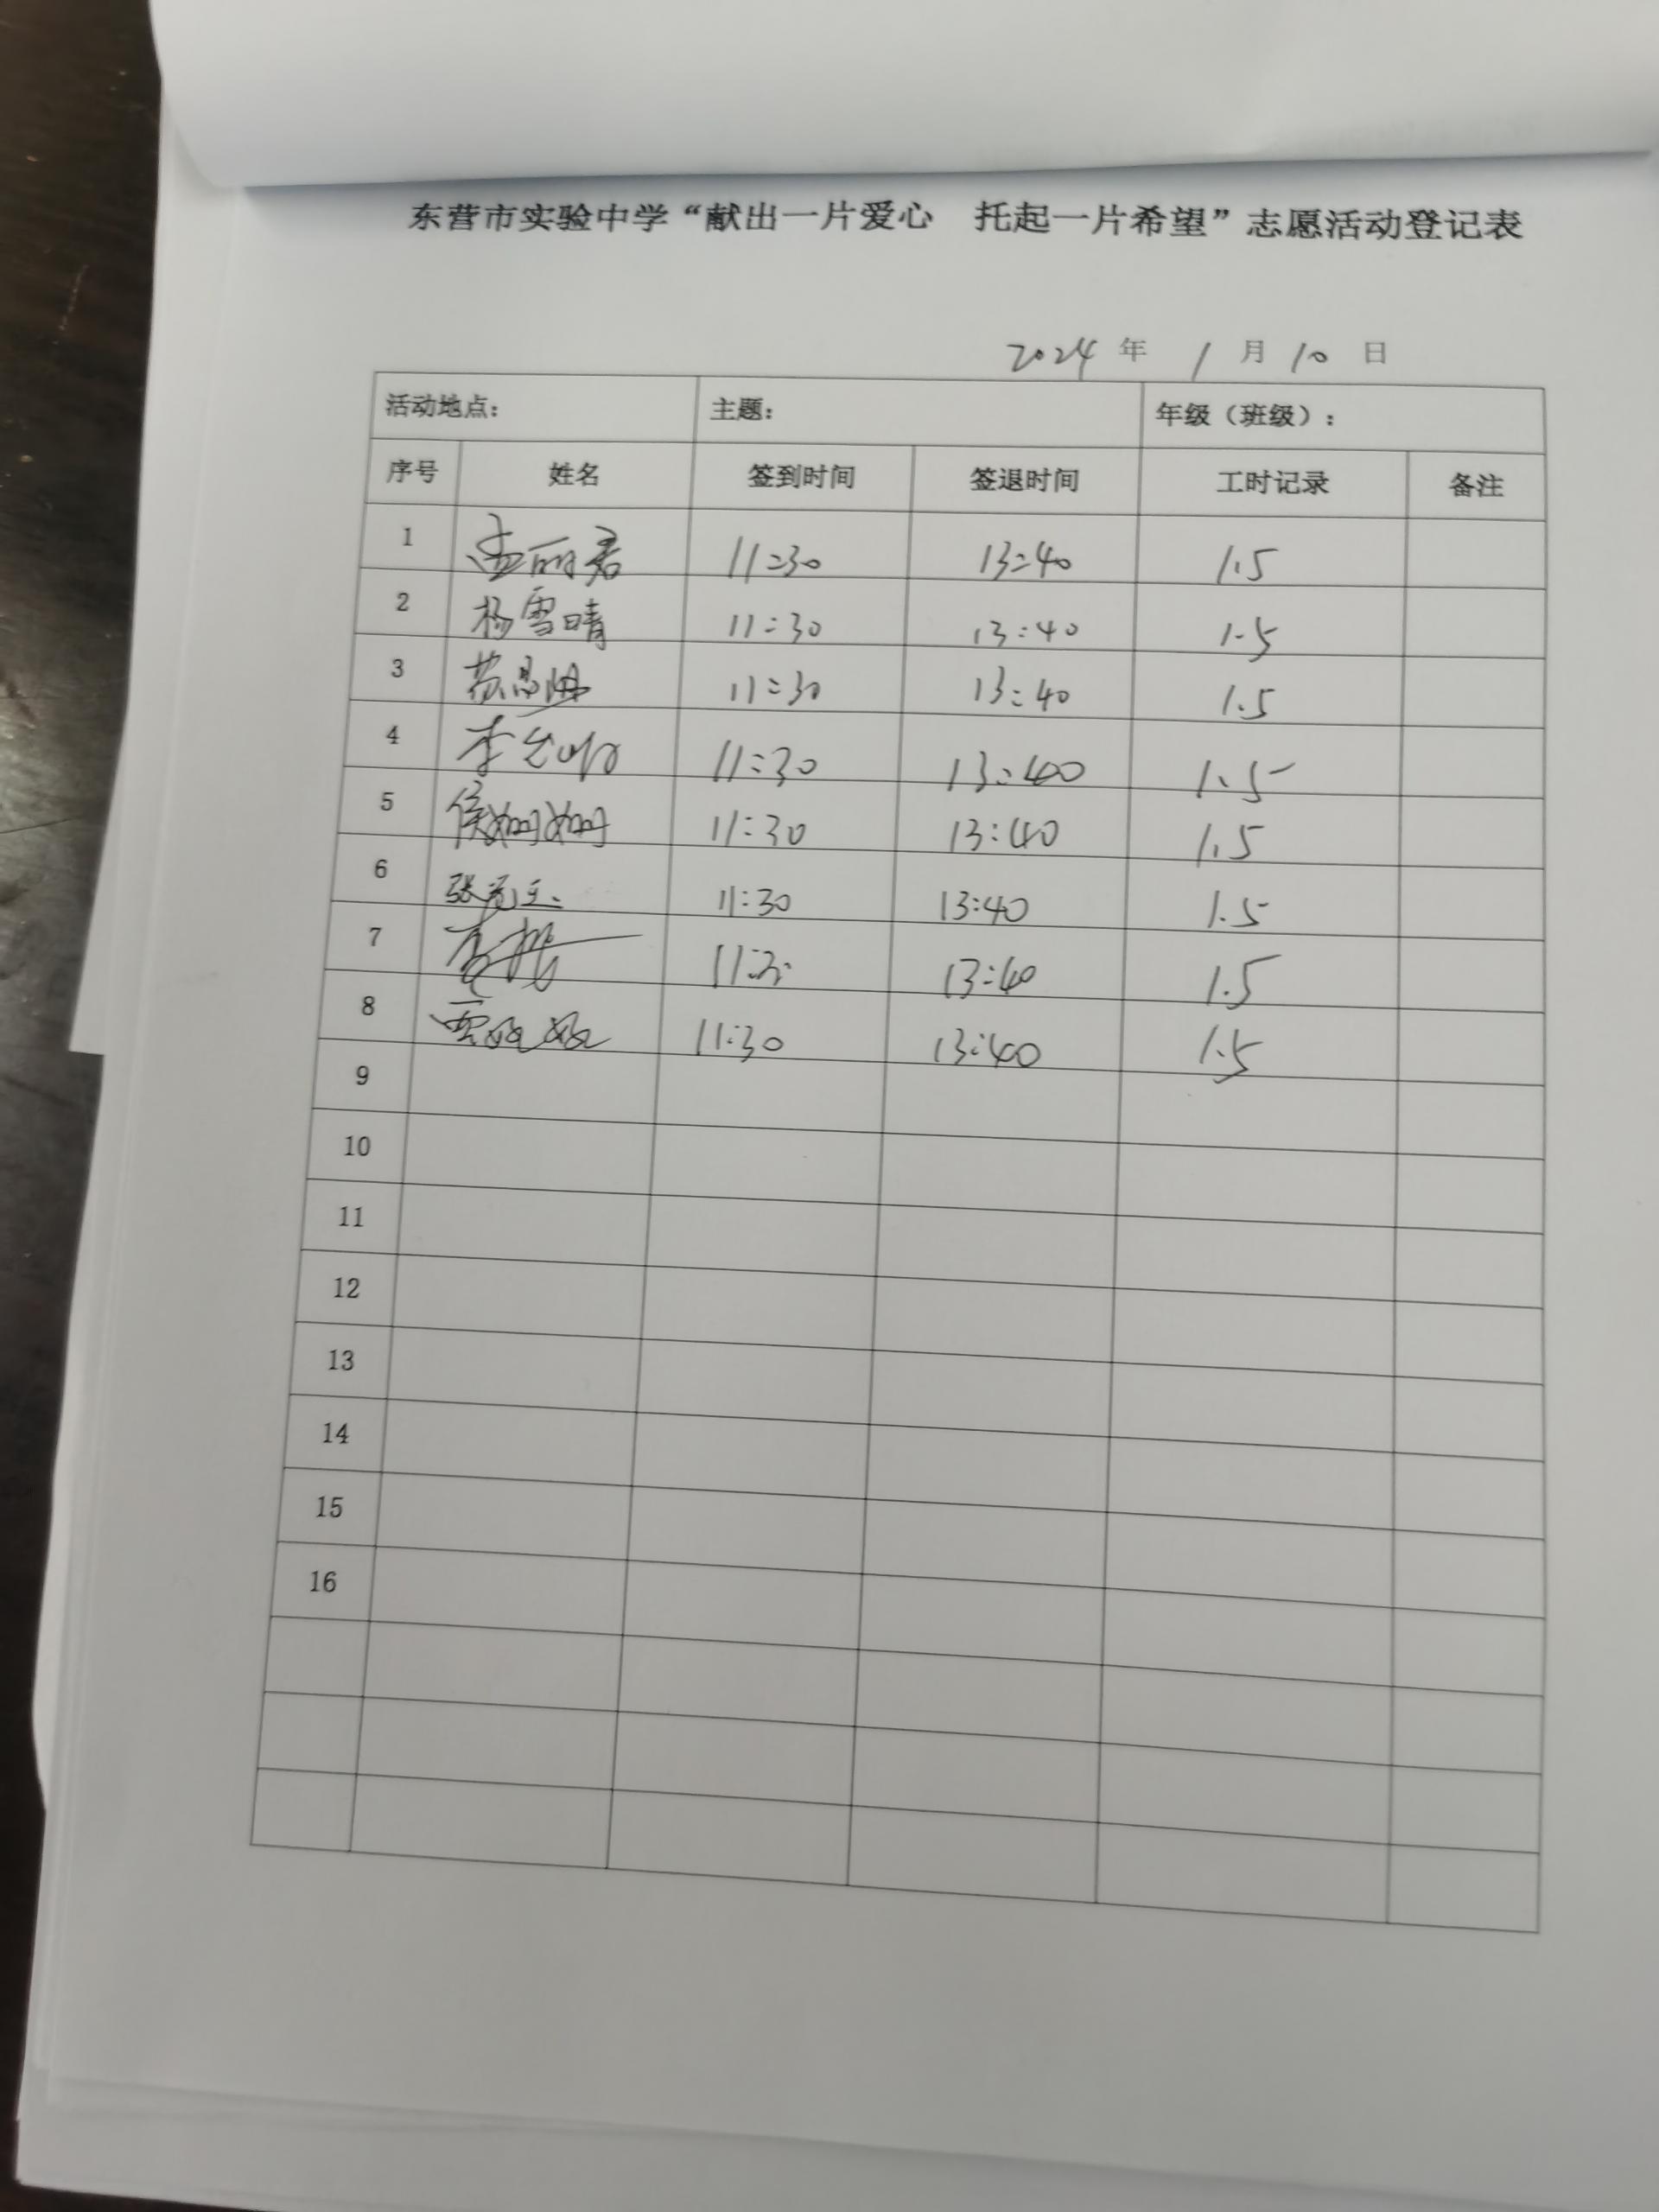 东营市实验中学“献出一片爱心　托起一片希望”志愿活动登记表
2024 年 1 月 10 日
活动地点： 主题： 年级（班级）：
序号 姓名 签到时间 签退时间 工时记录 备注
1 孟丽君 11:30 13:40 1.5
2 杨雪晴 11:30 13:40 1.5
3 苏 11:30 13:40 1.5
4 李 11:30 13:40 1.5
5 侯姗姗 11:30 13:40 1.5
6 张 11:30 13:40 1.5
7 11:30 13:40 1.5
8 贾 11:30 13:40 1.5
9
10
11
12
13
14
15
16